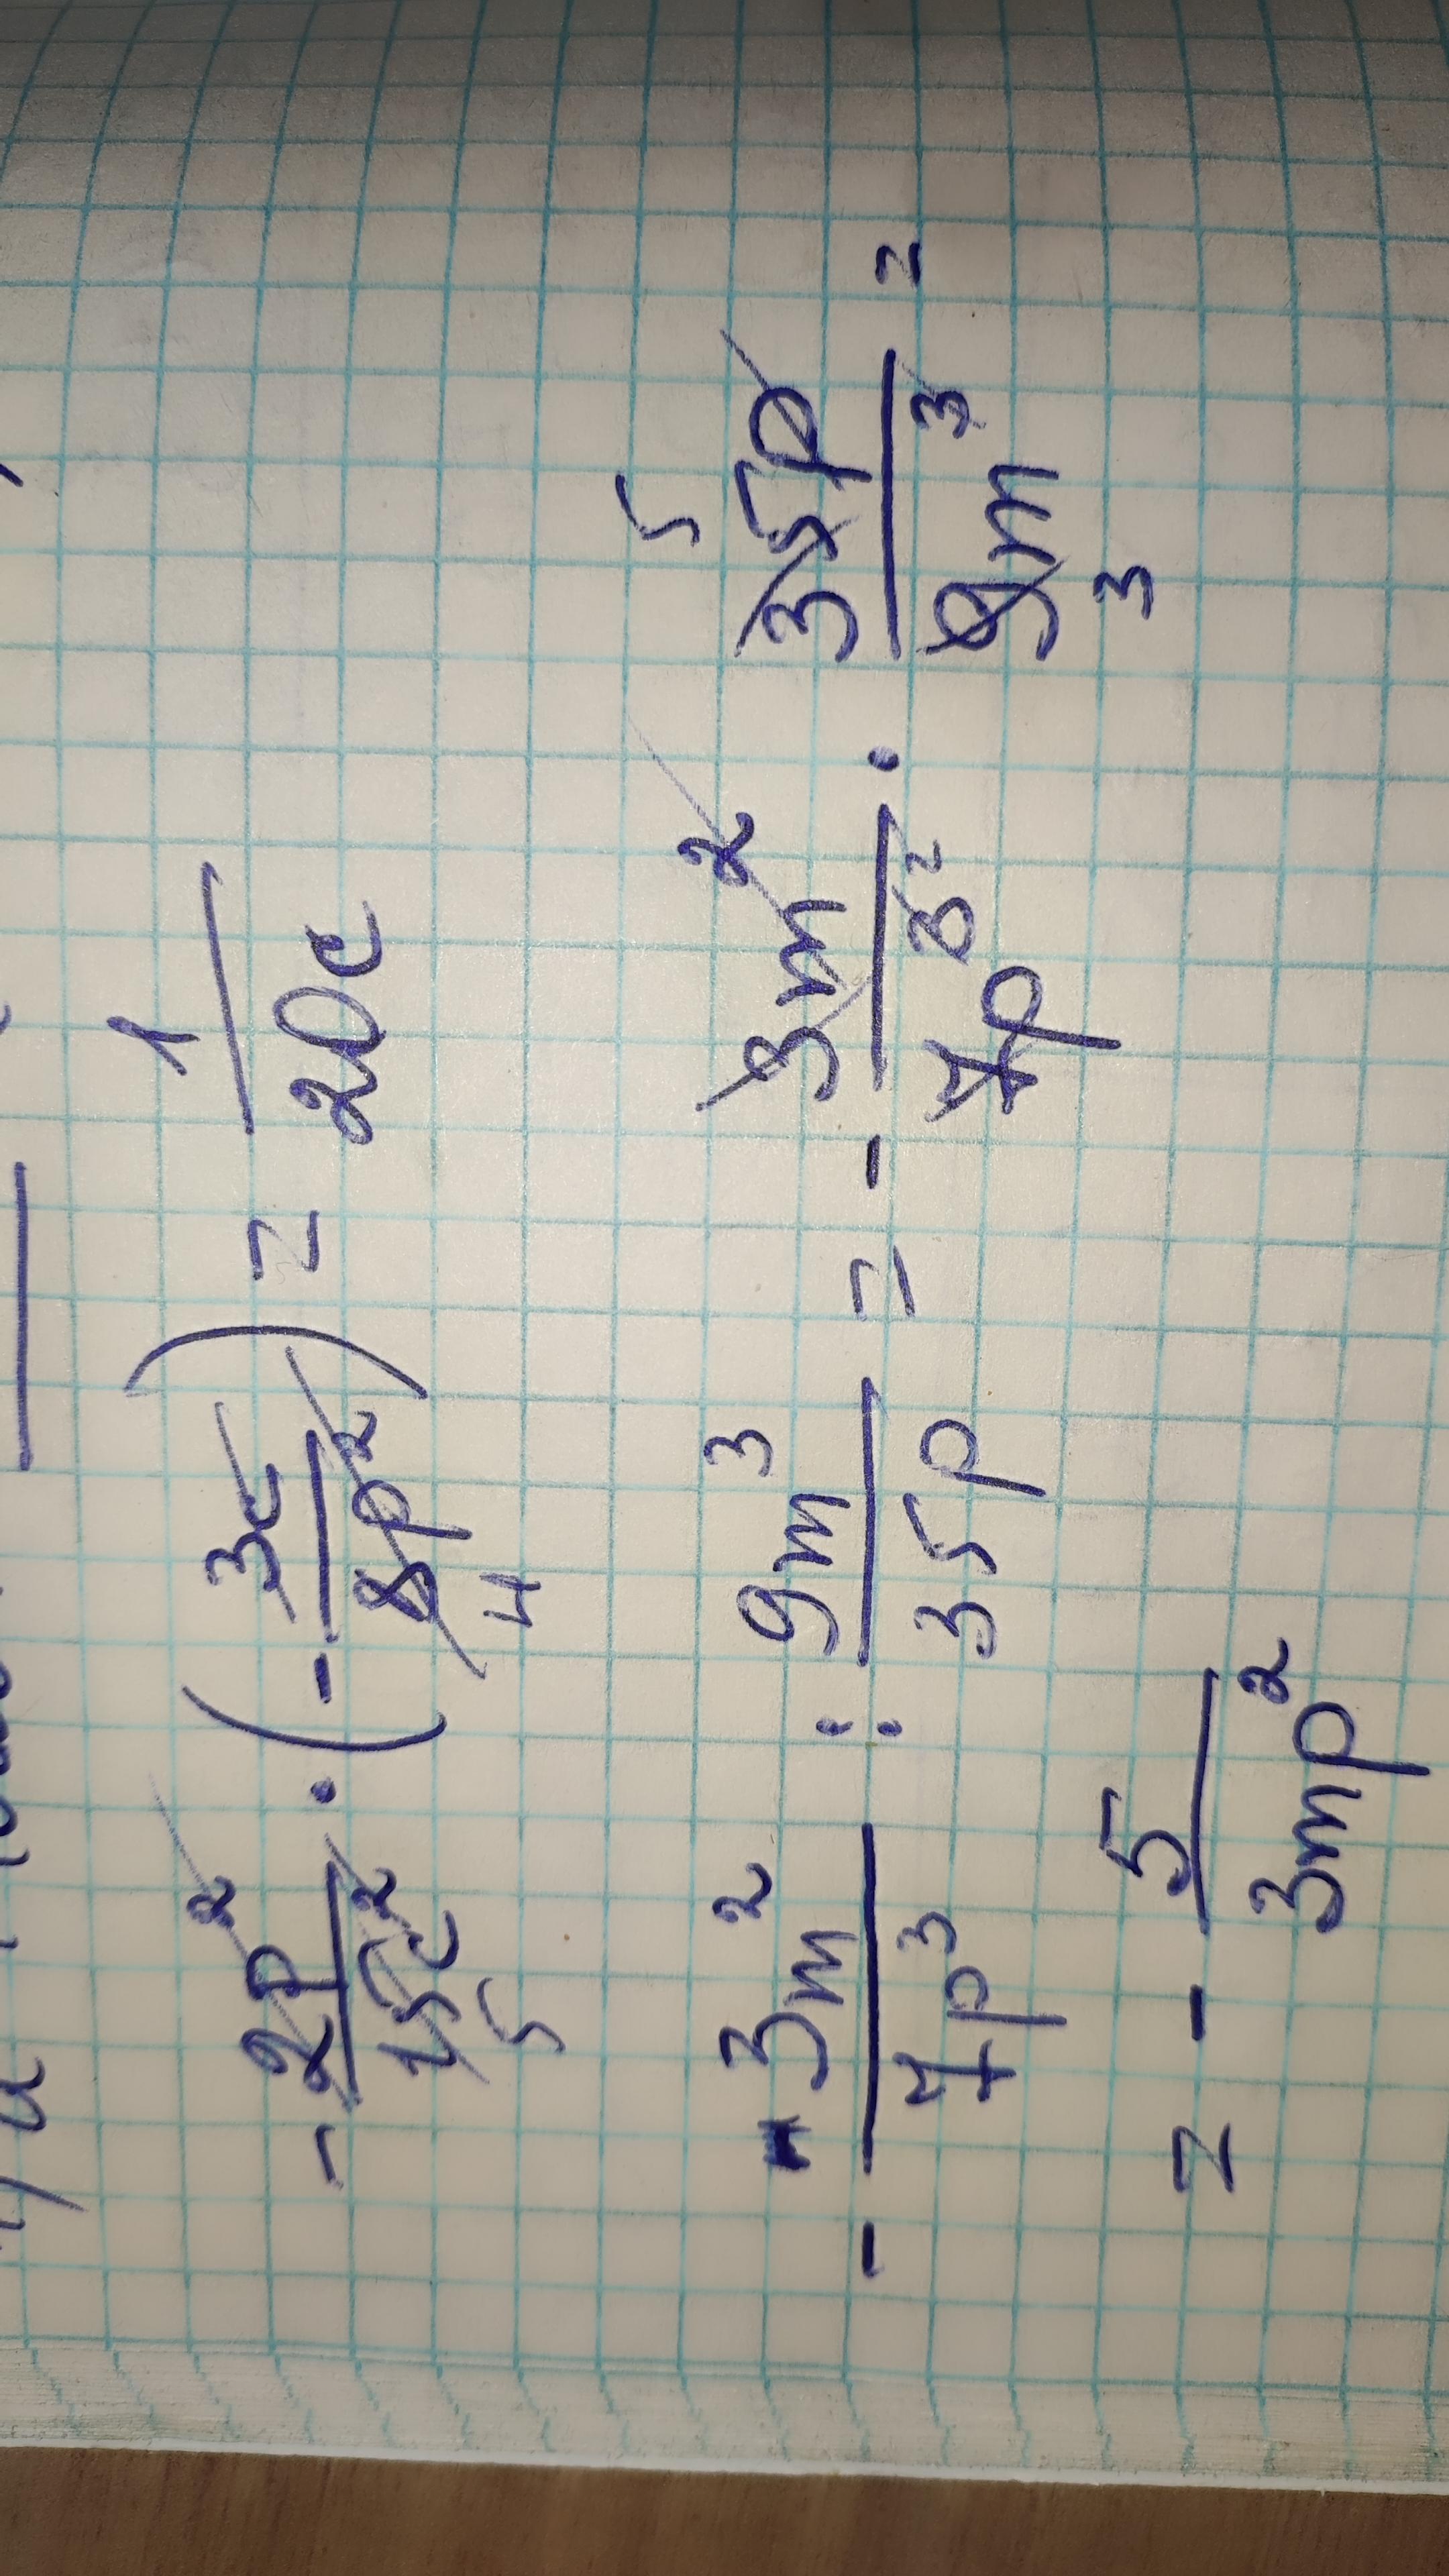 - 2p² / 15c² 5 · (- 3c / 8p² 4) = 1 / 20c
- 3m² / 7p³ : 9m³ / 35p = - 3m² / 7p³ ² · 5 35p / 9m³ 3 =
= - 5 / 3mp²